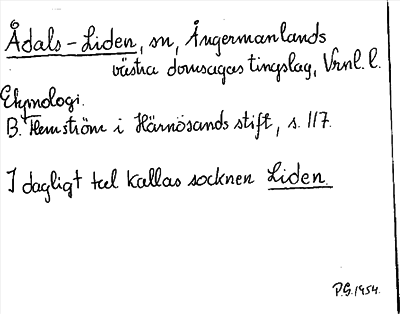 Ådals-Liden, sn, Ångermanlands
västra domsagas tingslag, Vrnl. l.
Etymologi.
B. Hemström i Härnösands stift, s. 117.
I dagligt tal kallas socknen Liden.
P.G. 1954.